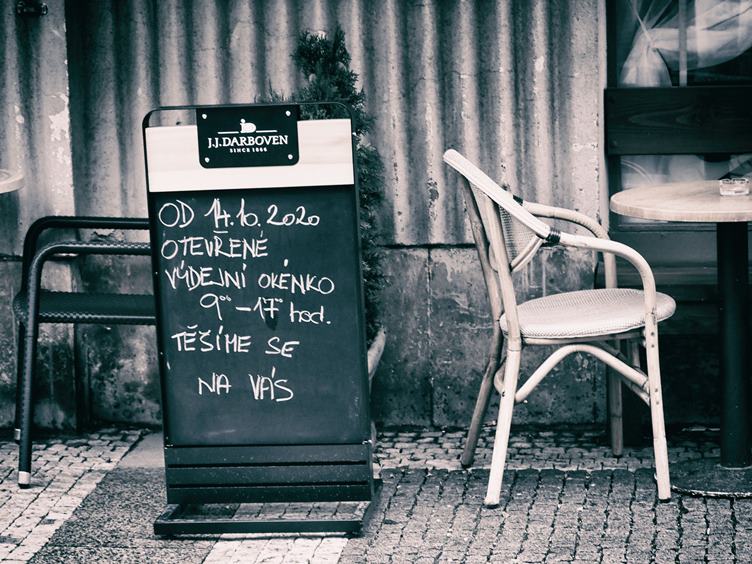 J.J.DARBOVEN
SINCE 1866
OD 14.10.2020
OTEVŘENÉ
VÝDEJNÍ OKÉNKO
9⁰⁰ – 17⁰⁰ hod.
TĚŠÍME SE
NA VÁS